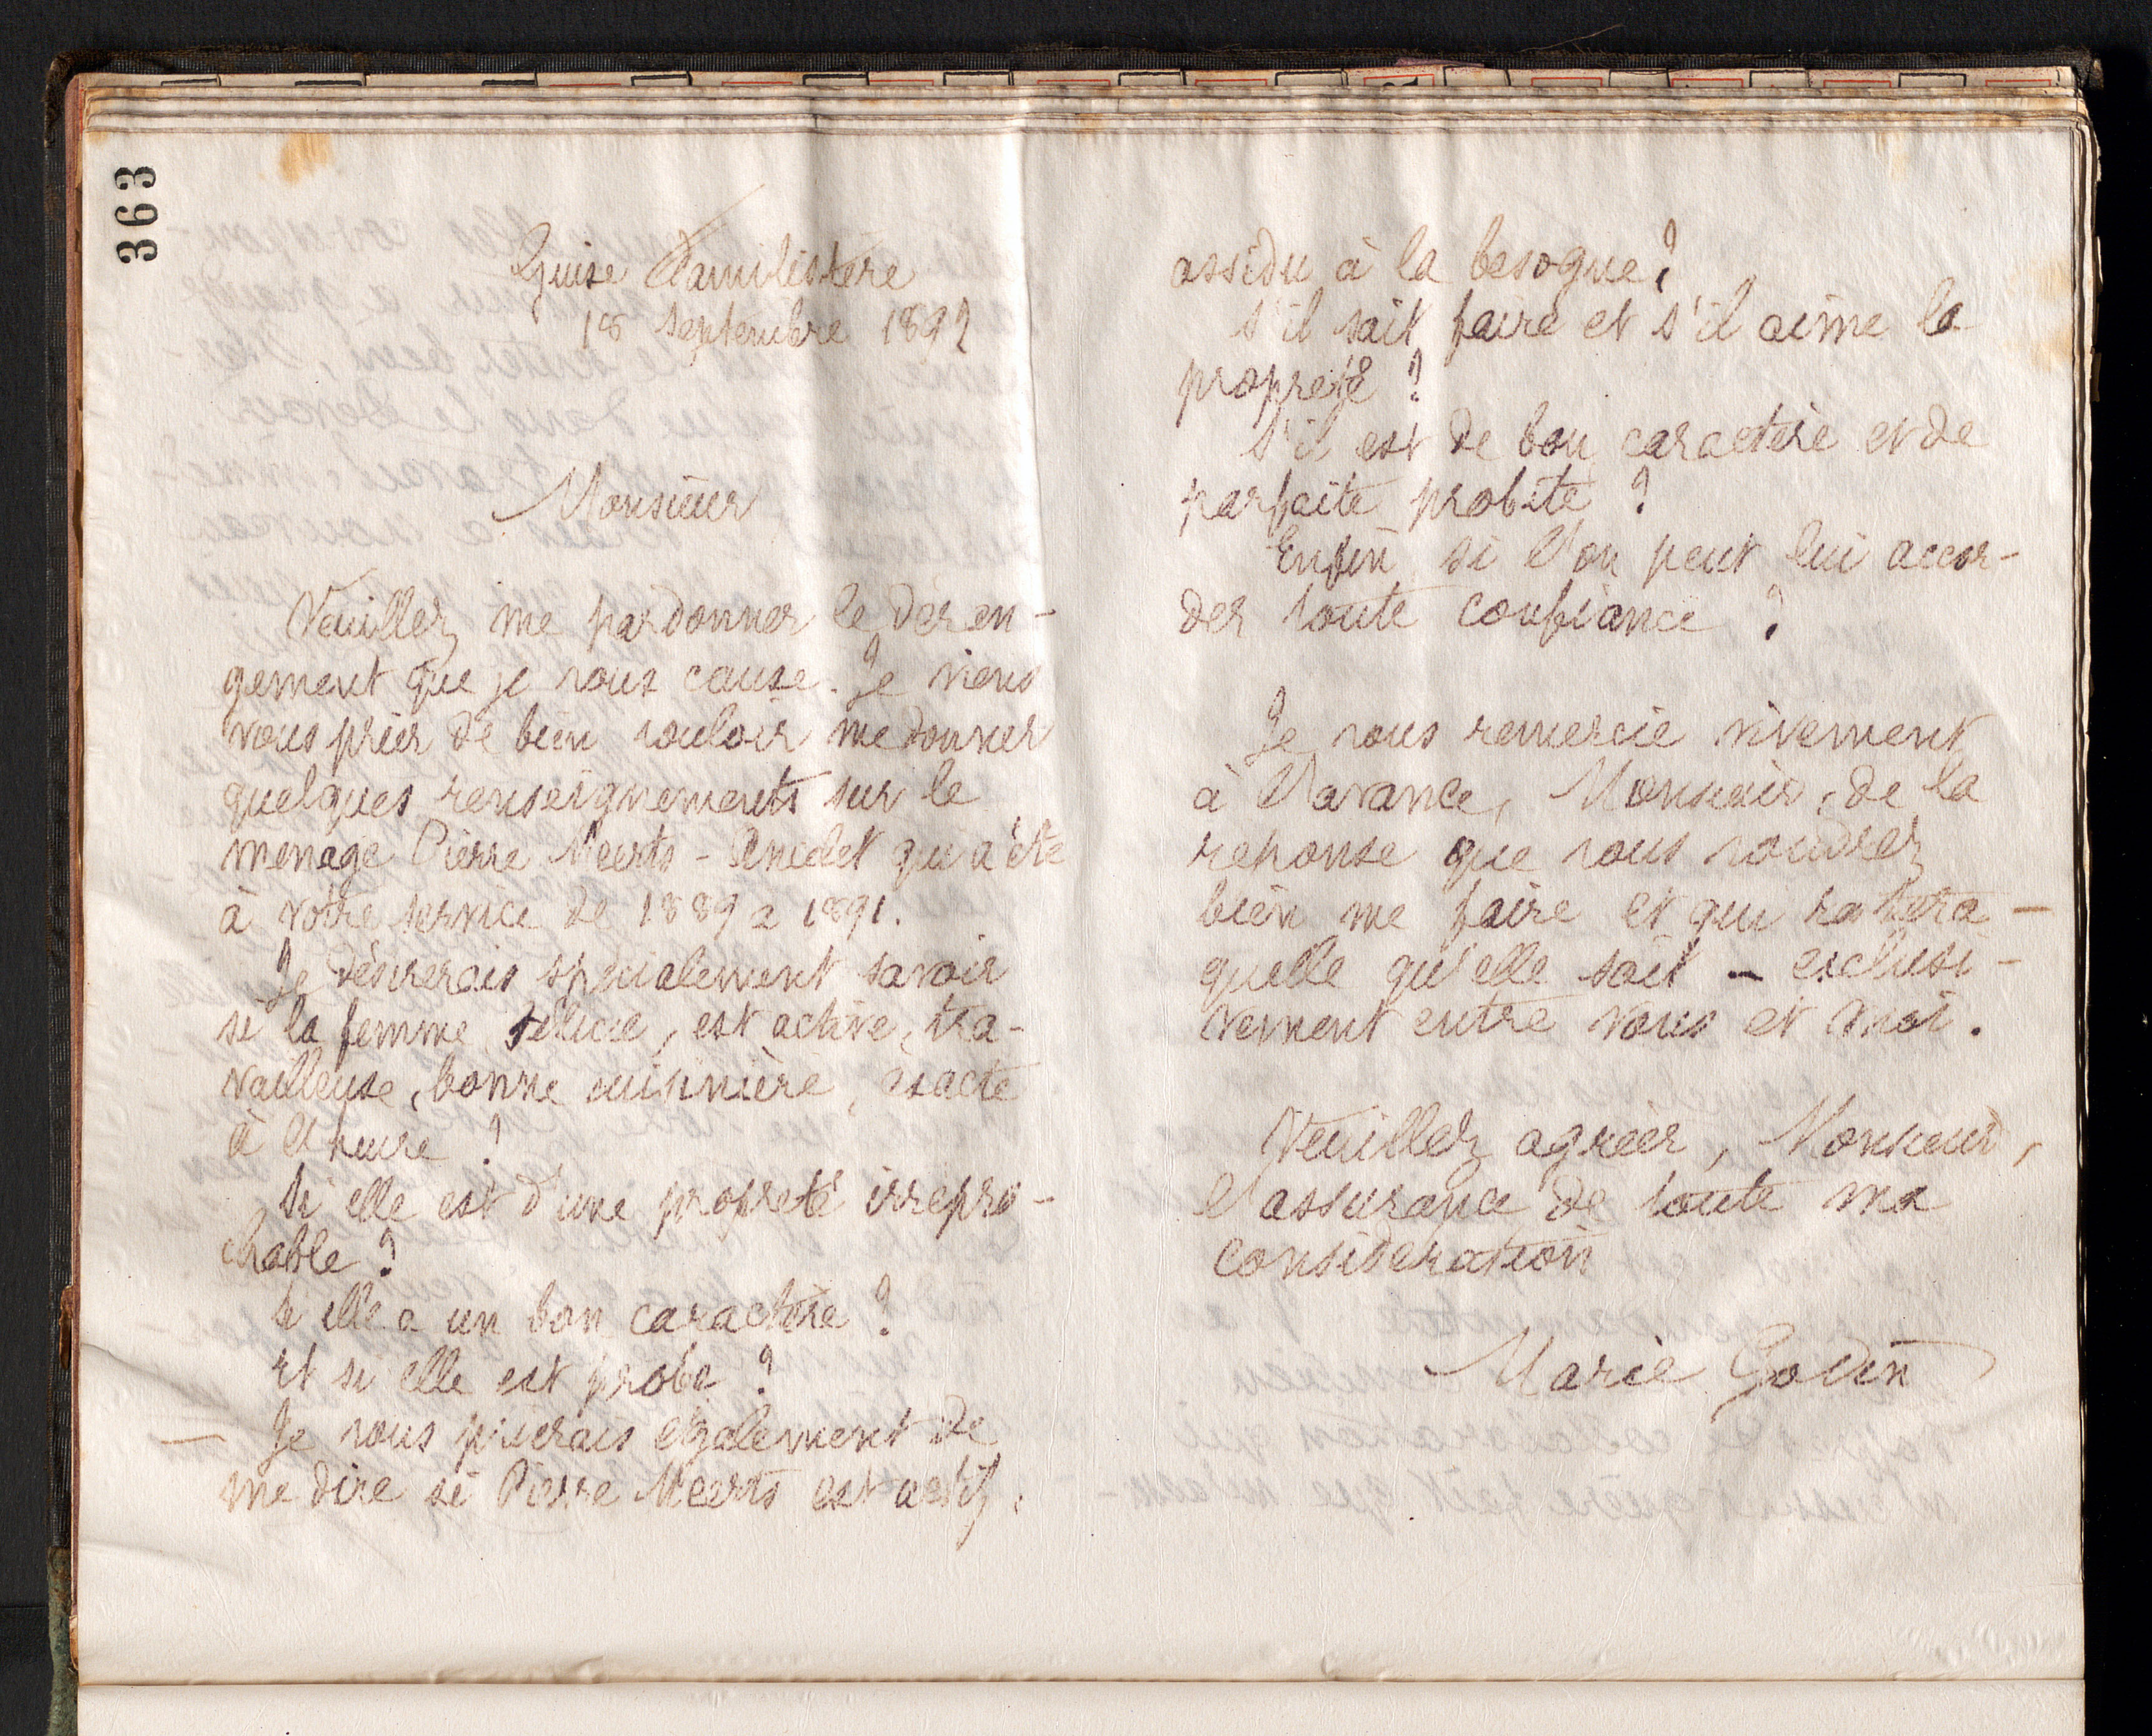 363
Guise Familistère
18 septembre 1892
Monsieur
Veuillez me pardonner le déran-
gement que je vous cause. Je viens
vous prier de bien vouloir me donner
quelques renseignements sur le
ménage Pierre Meerts - qui a été
à votre service de 1889 à 1891.
Je désirerais spécialement savoir
si la femme, Félicie, est active, tra-
vailleuse, bonne cuisinière, exacte
à l'heure ?
Si elle est d'une propreté irrépro-
chable ?
Si elle a un bon caractère ?
Et si elle est probe ?
— Je vous prierais également de
me dire si Pierre Meerts est actif,
assidu à la besogne ?
S'il sait faire et s'il aime la
propreté ?
S'il est de bon caractère et de
parfaite probité ?
Enfin si l'on peut lui accor-
der toute confiance ?
Je vous remercie vivement
à l'avance, Monsieur, de la
réponse que vous voudrez
bien me faire et qui restera —
quelle qu'elle soit — exclusi-
vement entre vous et moi.
Veuillez agréer, Monsieur,
l'assurance de toute ma
considération
Marie Godin